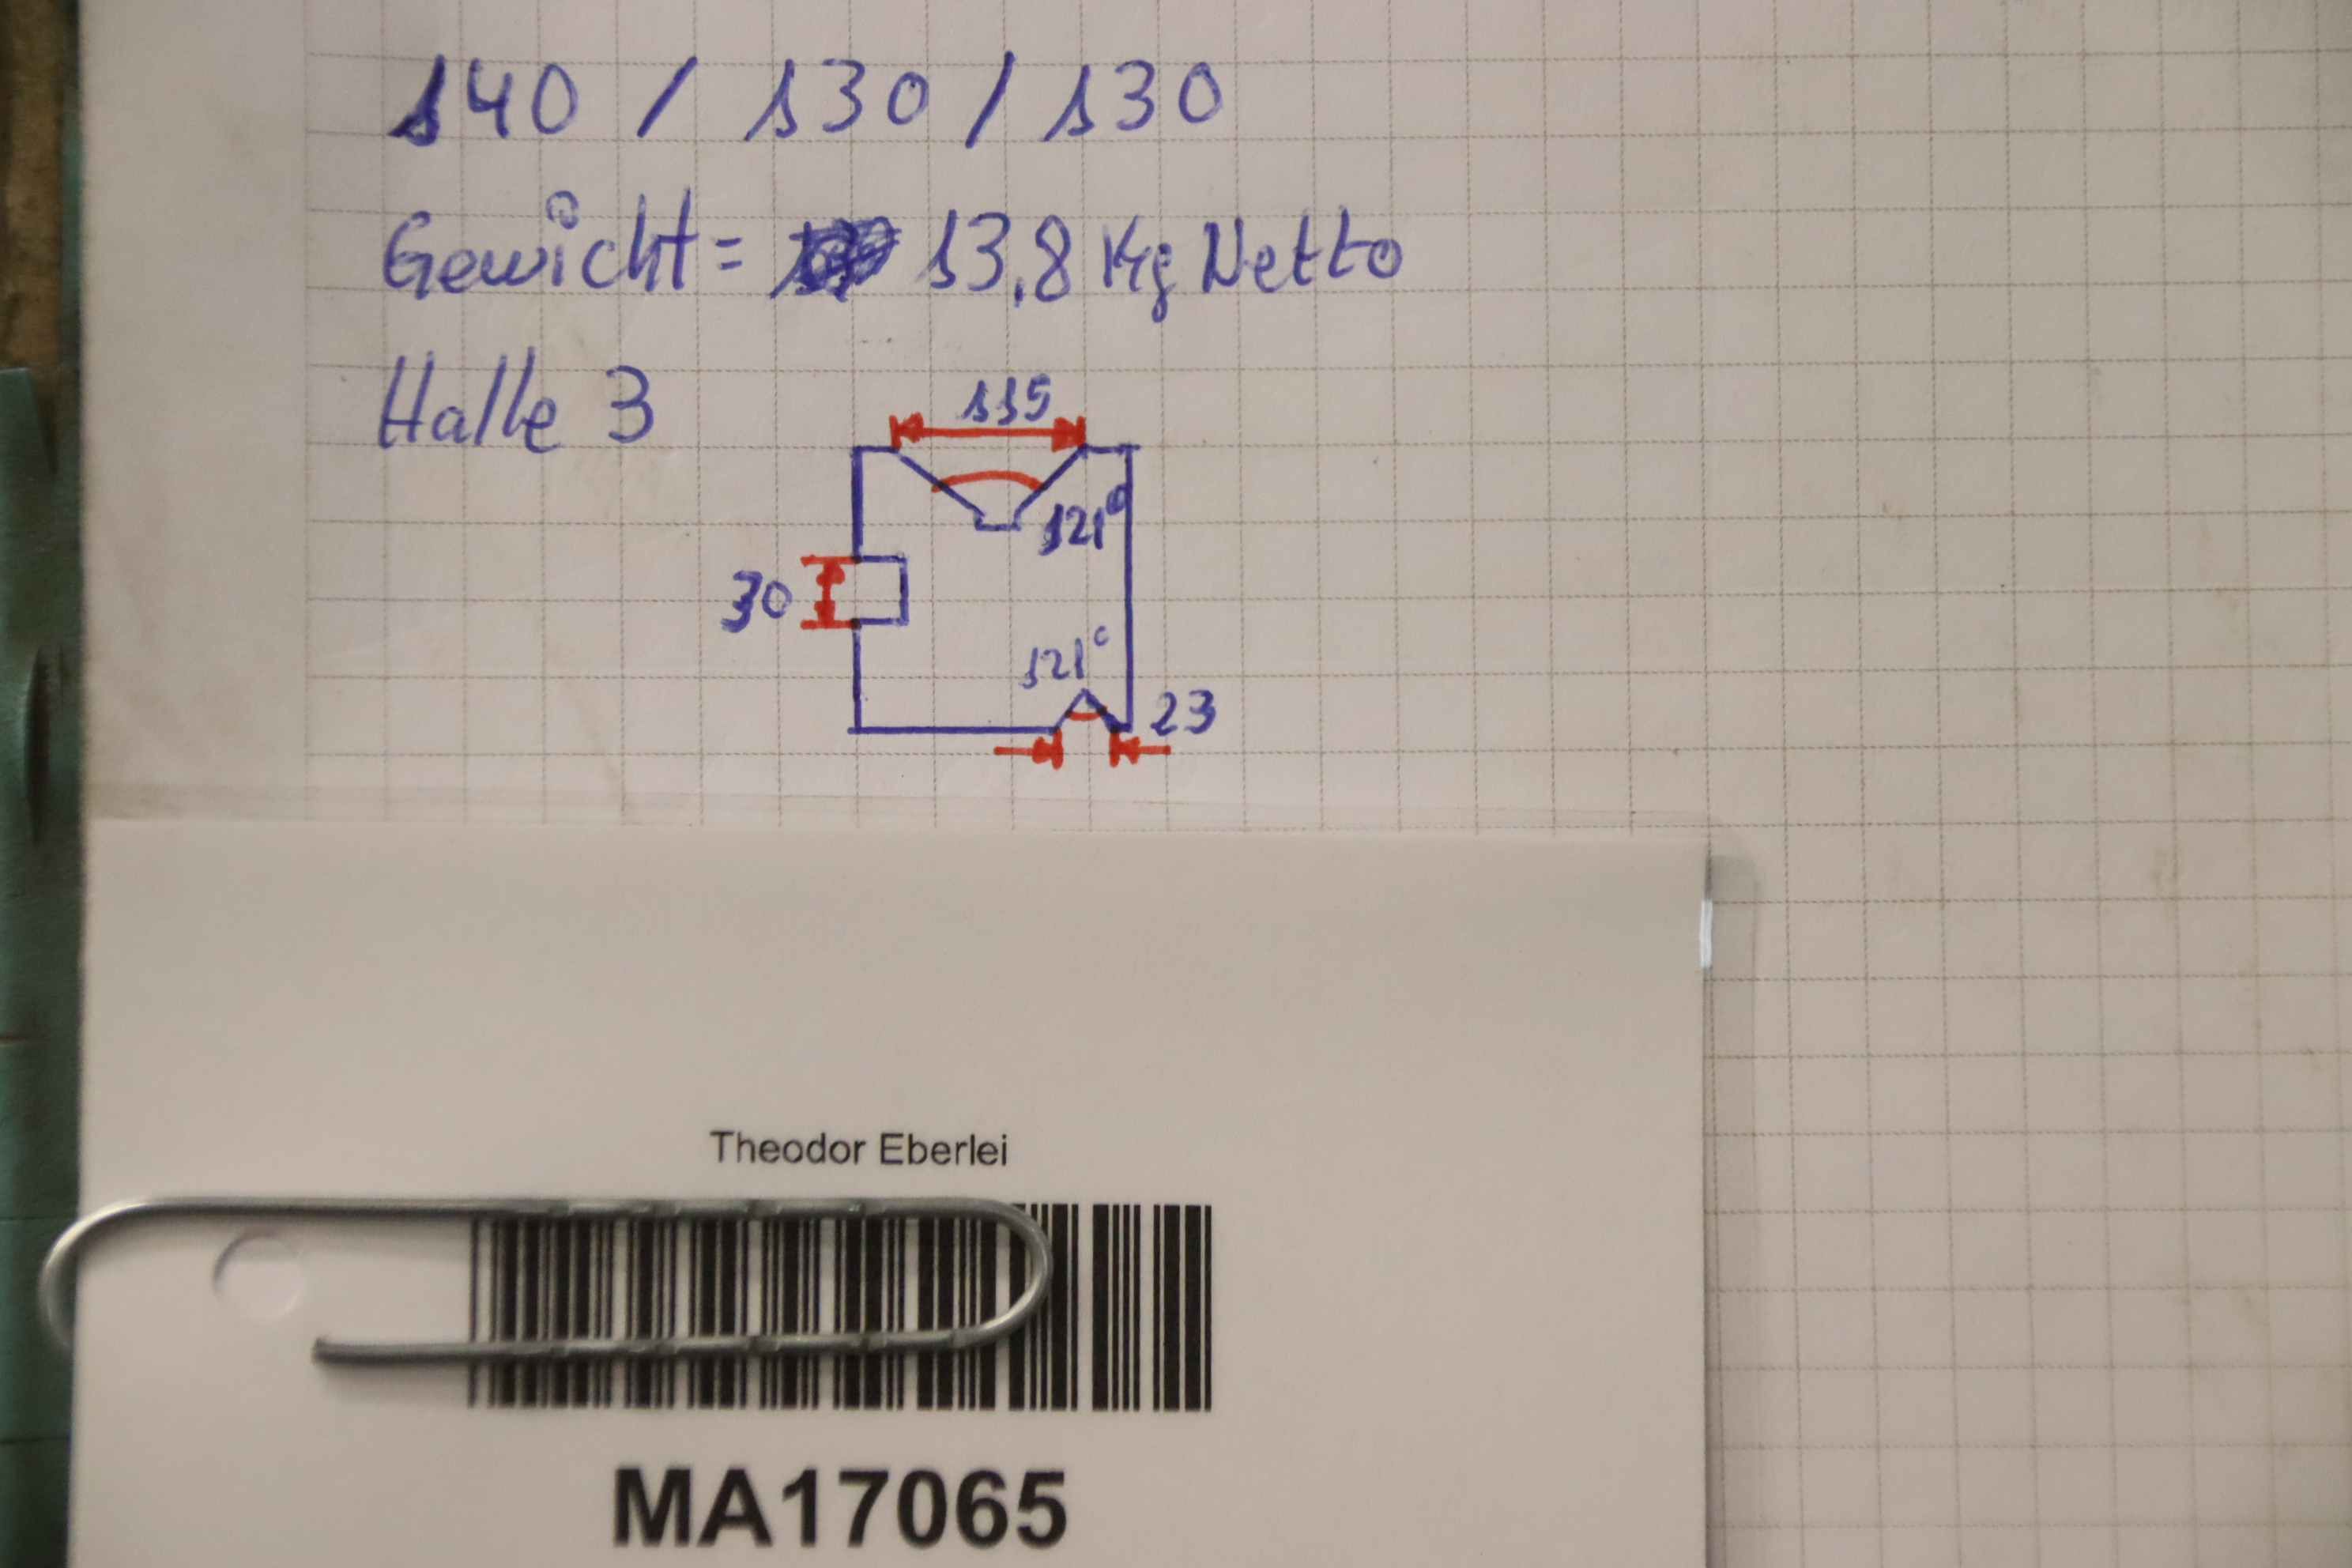 140 / 130 / 130
Gewicht = 13,8 Kg Netto
Halle 3
115
121°
30
121°
23
Theodor Eberlei
MA17065